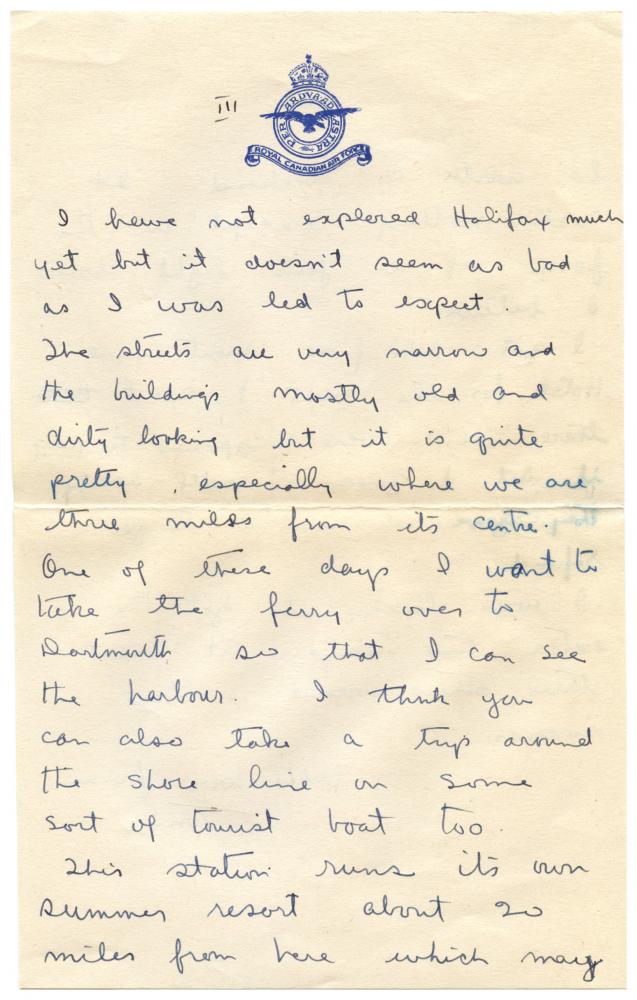 III
PER ARDVA AD ASTRA
ROYAL CANADIAN AIR FORCE
I have not explored Halifax much
yet but it doesn't seem as bad
as I was led to expect.
The streets are very narrow and
the buildings mostly old and
dirty looking but it is quite
pretty, especially where we are
three miles from its centre.
One of these days I want to
take the ferry over to
Dartmouth so that I can see
the harbour. I think you
can also take a trip around
the shore line on some
sort of tourist boat too.
This station runs its own
summer resort about 20
miles from here which may